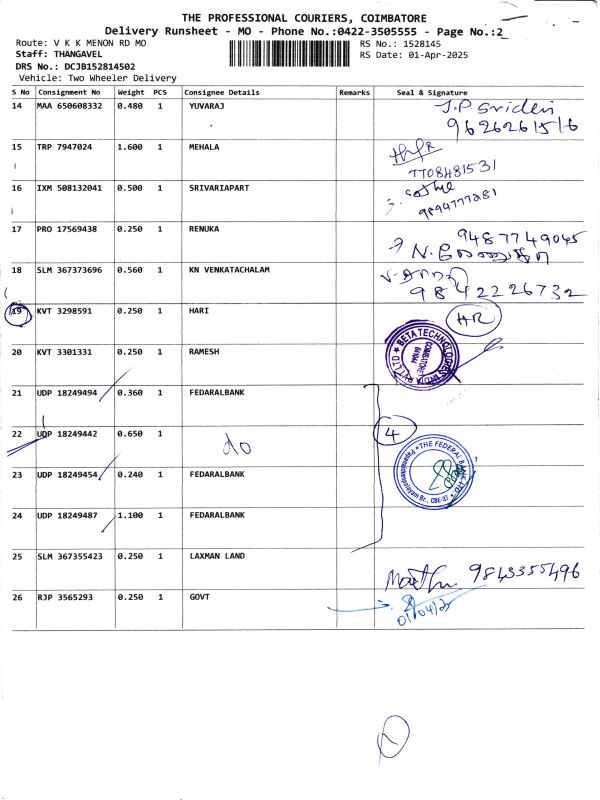 THE PROFESSIONAL COURIERS, COIMBATORE
Delivery Runsheet - MO - Phone No.:0422-3505555 - Page No.:2
Route: V K K MENON RD MO
RS No.: 1528145
Staff: THANGAVEL
RS Date: 01-Apr-2025
DRS No.: DCJB152814502
Vehicle: Two Wheeler Delivery
S No Consignment No Weight PCS Consignee Details Remarks Seal & Signature
14 MAA 650608332 0.480 1 YUVARAJ J.P Sridein
9626261516
15 TRP 7947024 1.600 1 MEHALA
7708481531
16 IXM 508132041 0.500 1 SRIVARIAPART
9894777281
17 PRO 17569438 0.250 1 RENUKA 9487749045
18 SLM 367373696 0.560 1 KN VENKATACHALAM
9842226732
19 KVT 3298591 0.250 1 HARI HR
BETA TECHNOLOGIES INDIA PVT LTD
COIMBATORE
641044
20 KVT 3301331 0.250 1 RAMESH
21 UDP 18249494 0.360 1 FEDARALBANK
22 UDP 18249442 0.650 1 do 4
THE FEDERAL BANK LTD.
Br., CBE-37
23 UDP 18249454 0.240 1 FEDARALBANK
24 UDP 18249487 1.100 1 FEDARALBANK
25 SLM 367355423 0.250 1 LAXMAN LAND 9843355496
26 RJP 3565293 0.250 1 GOVT
01/04/25